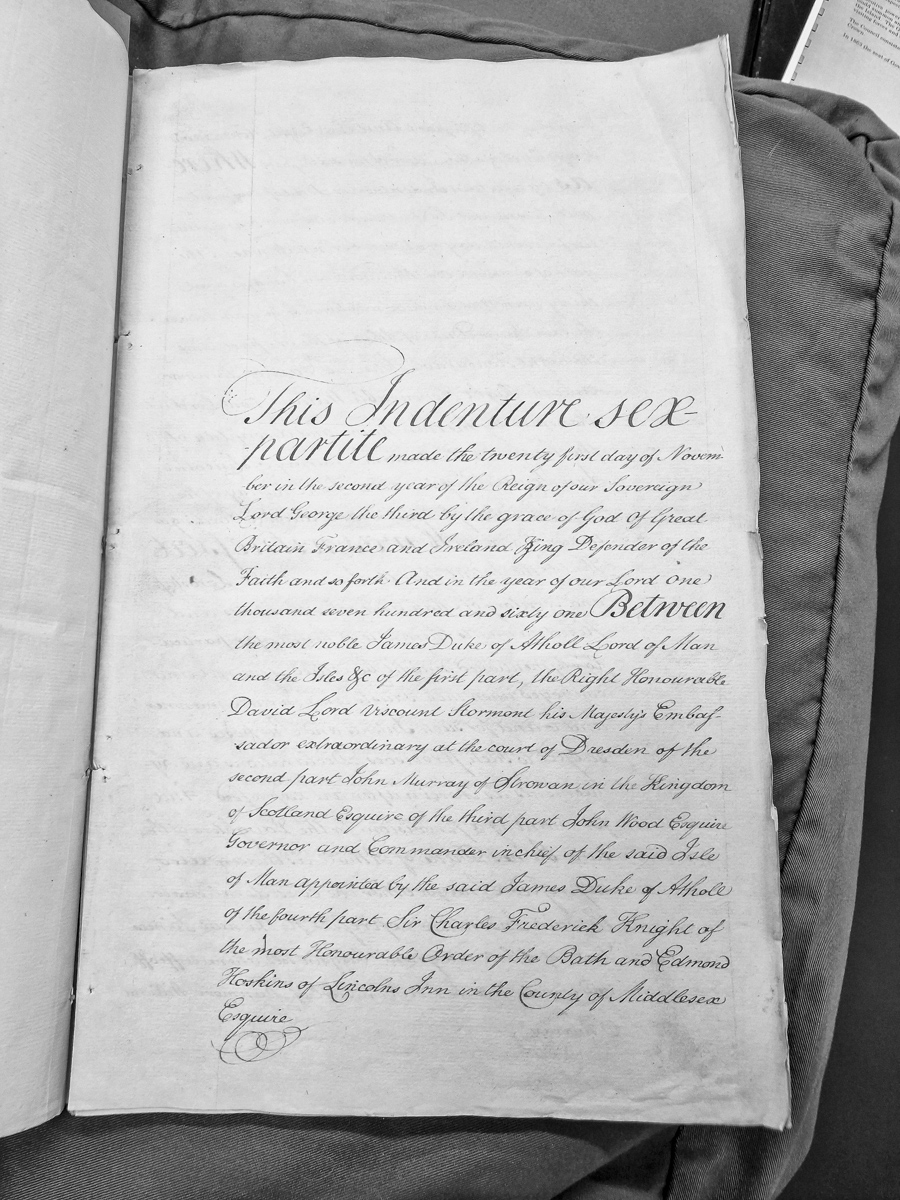 This Indenture sex-
partite made the twenty first day of Novem-
ber in the second year of the Reign of our Sovereign
Lord George the third by the grace of God Of Great
Britain France and Ireland King Defender of the
Faith and so forth. And in the year of our Lord One
thousand seven hundred and sixty one Between
the most noble James Duke of Atholl Lord of Man
and the Isles &c of the first part, the Right Honourable
David Lord Viscount Stormont his Majesty's Embas-
sador extraordinary at the court of Dresden of the
second part John Murray of Strowan in the Kingdom
of Scotland Esquire of the third part John Wood Esquire
Governor and Commander in chief of the said Isle
of Man appointed by the said James Duke of Atholl
of the fourth part Sir Charles Frederick Knight of
the most Honourable Order of the Bath and Edmond
Hoskins of Lincolns Inn in the County of Middlesex
Esquire
The Council
Crown.
In 1863 the seat of Gov